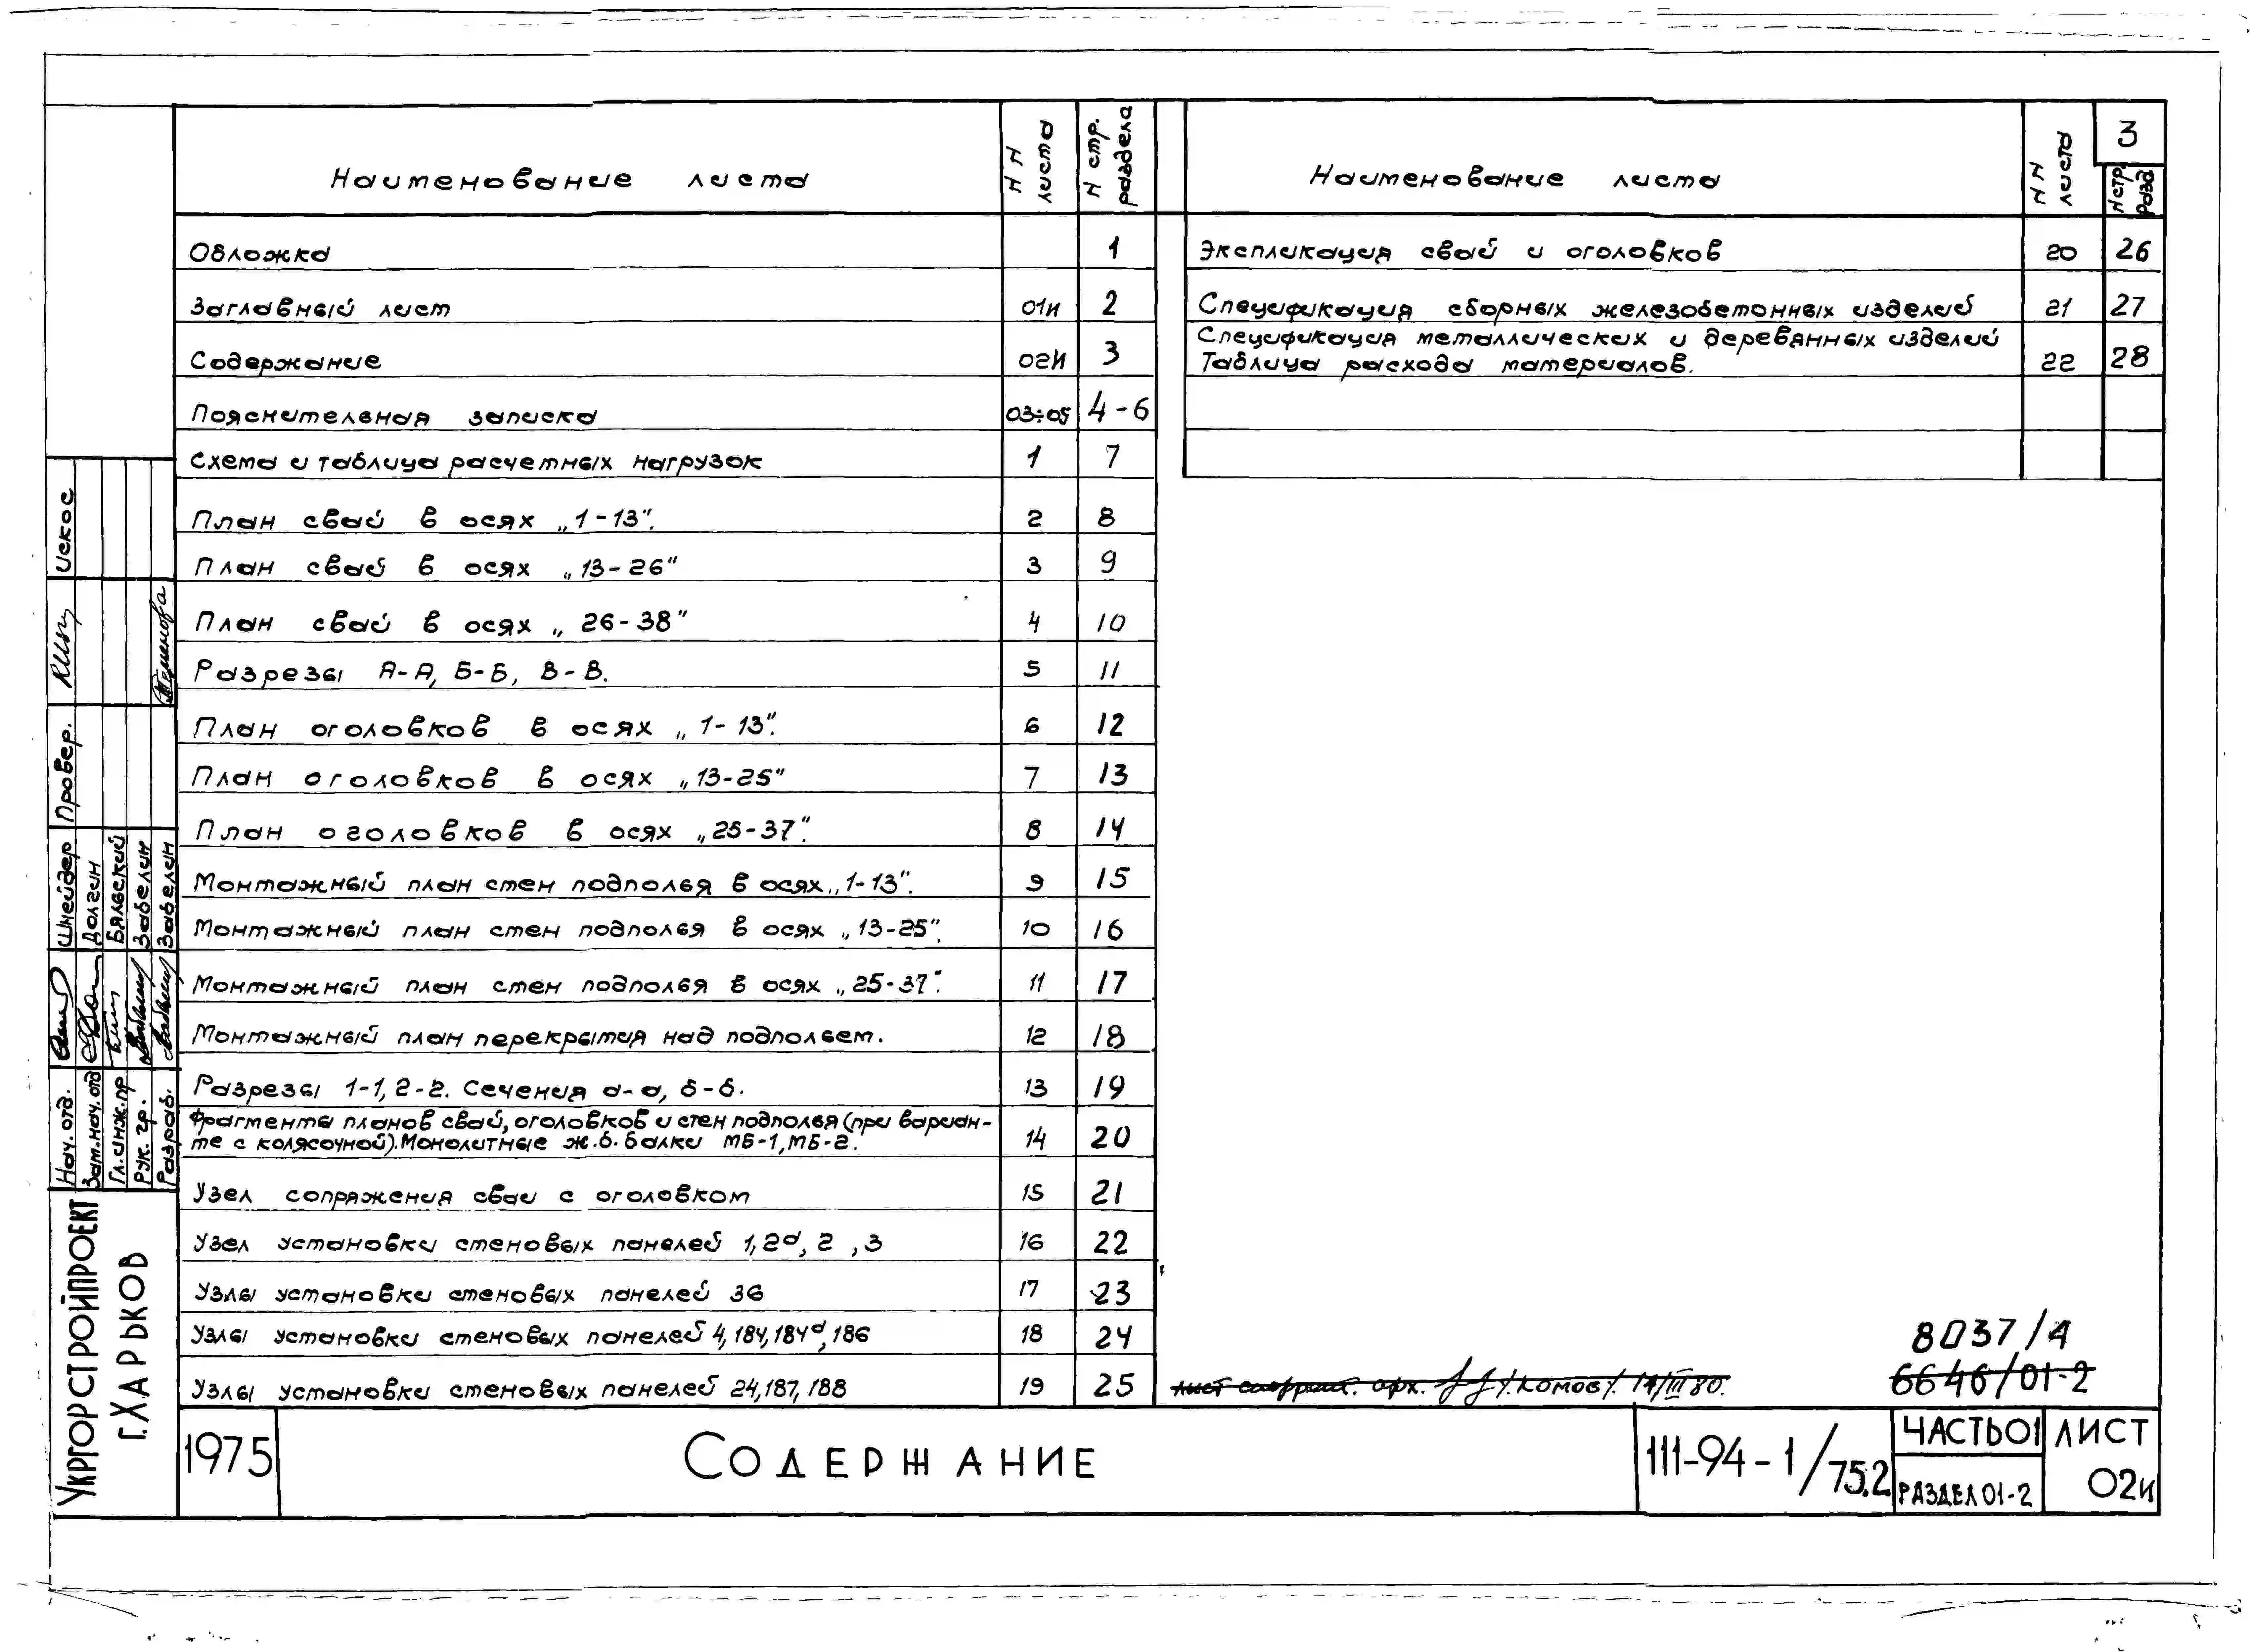 3
Наименование листа
NN листа
N стр. раздела
Обложка 1
Заглавный лист 01и 2
Содержание 02и 3
Пояснительная записка 03÷05 4-6
Схема и таблица расчетных нагрузок 1 7
План свай в осях „1-13". 2 8
План свай в осях „13-26" 3 9
План свай в осях „26-38" 4 10
Разрезы А-А, Б-Б, В-В. 5 11
План оголовков в осях „1-13". 6 12
План оголовков в осях „13-25" 7 13
План оголовков в осях „25-37". 8 14
Монтажный план стен подполья в осях „1-13". 9 15
Монтажный план стен подполья в осях „13-25". 10 16
Монтажный план стен подполья в осях „25-37". 11 17
Монтажный план перекрытия над подпольем. 12 18
Разрезы 1-1, 2-2. Сечения а-а, б-б. 13 19
Фрагменты планов свай, оголовков и стен подполья (при вариан-
те с колясочной). Монолитные ж.б. балки МБ-1, МБ-2. 14 20
Узел сопряжения сваи с оголовком 15 21
Узел установки стеновых панелей 1, 2а, 2, 3 16 22
Узлы установки стеновых панелей 36 17 23
Узлы установки стеновых панелей 4, 184, 184а, 186 18 24
Узлы установки стеновых панелей 24, 187, 188 19 25
Наименование листа
NN листа
N стр. разд
Экспликация свай и оголовков 20 26
Спецификация сборных железобетонных изделий 21 27
Спецификация металлических и деревянных изделий
Таблица расхода материалов. 22 28
Искос
Провер.
Шнейдер
Долгин
Бяльский
Забелин
Забелин
Нач. отд.
Зам. нач. отд
Гл. инж. пр
Рук. гр.
Разраб.
УКРГОРСТРОЙПРОЕКТ
Г. ХАРЬКОВ
8037/4
6646/01-2
1975
СОДЕРЖАНИЕ
111-94-1/75.2
ЧАСТЬ 01
РАЗДЕЛ 01-2
ЛИСТ
02и